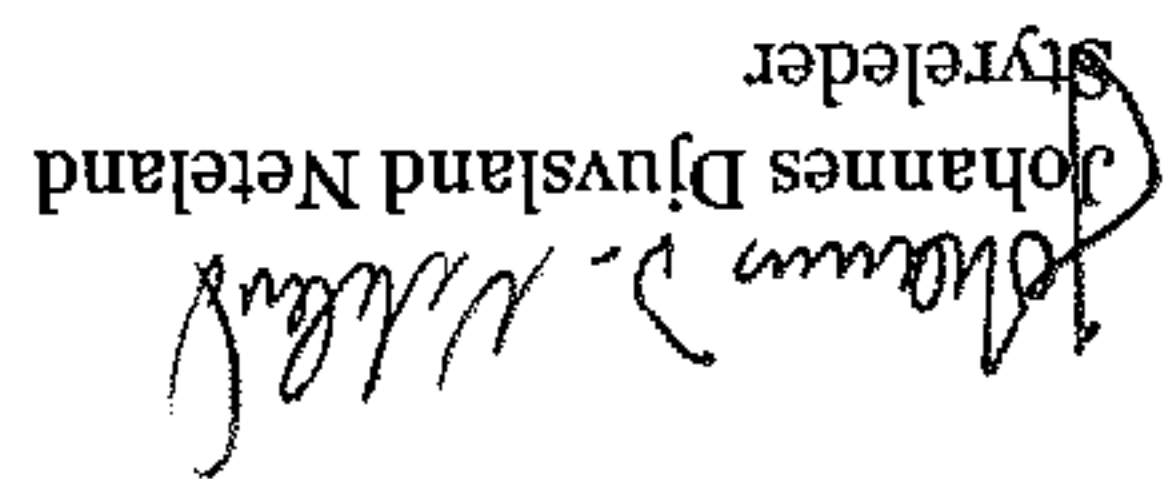 Johannes D. Neteland
Johannes Djuvsland Neteland
Styreleder